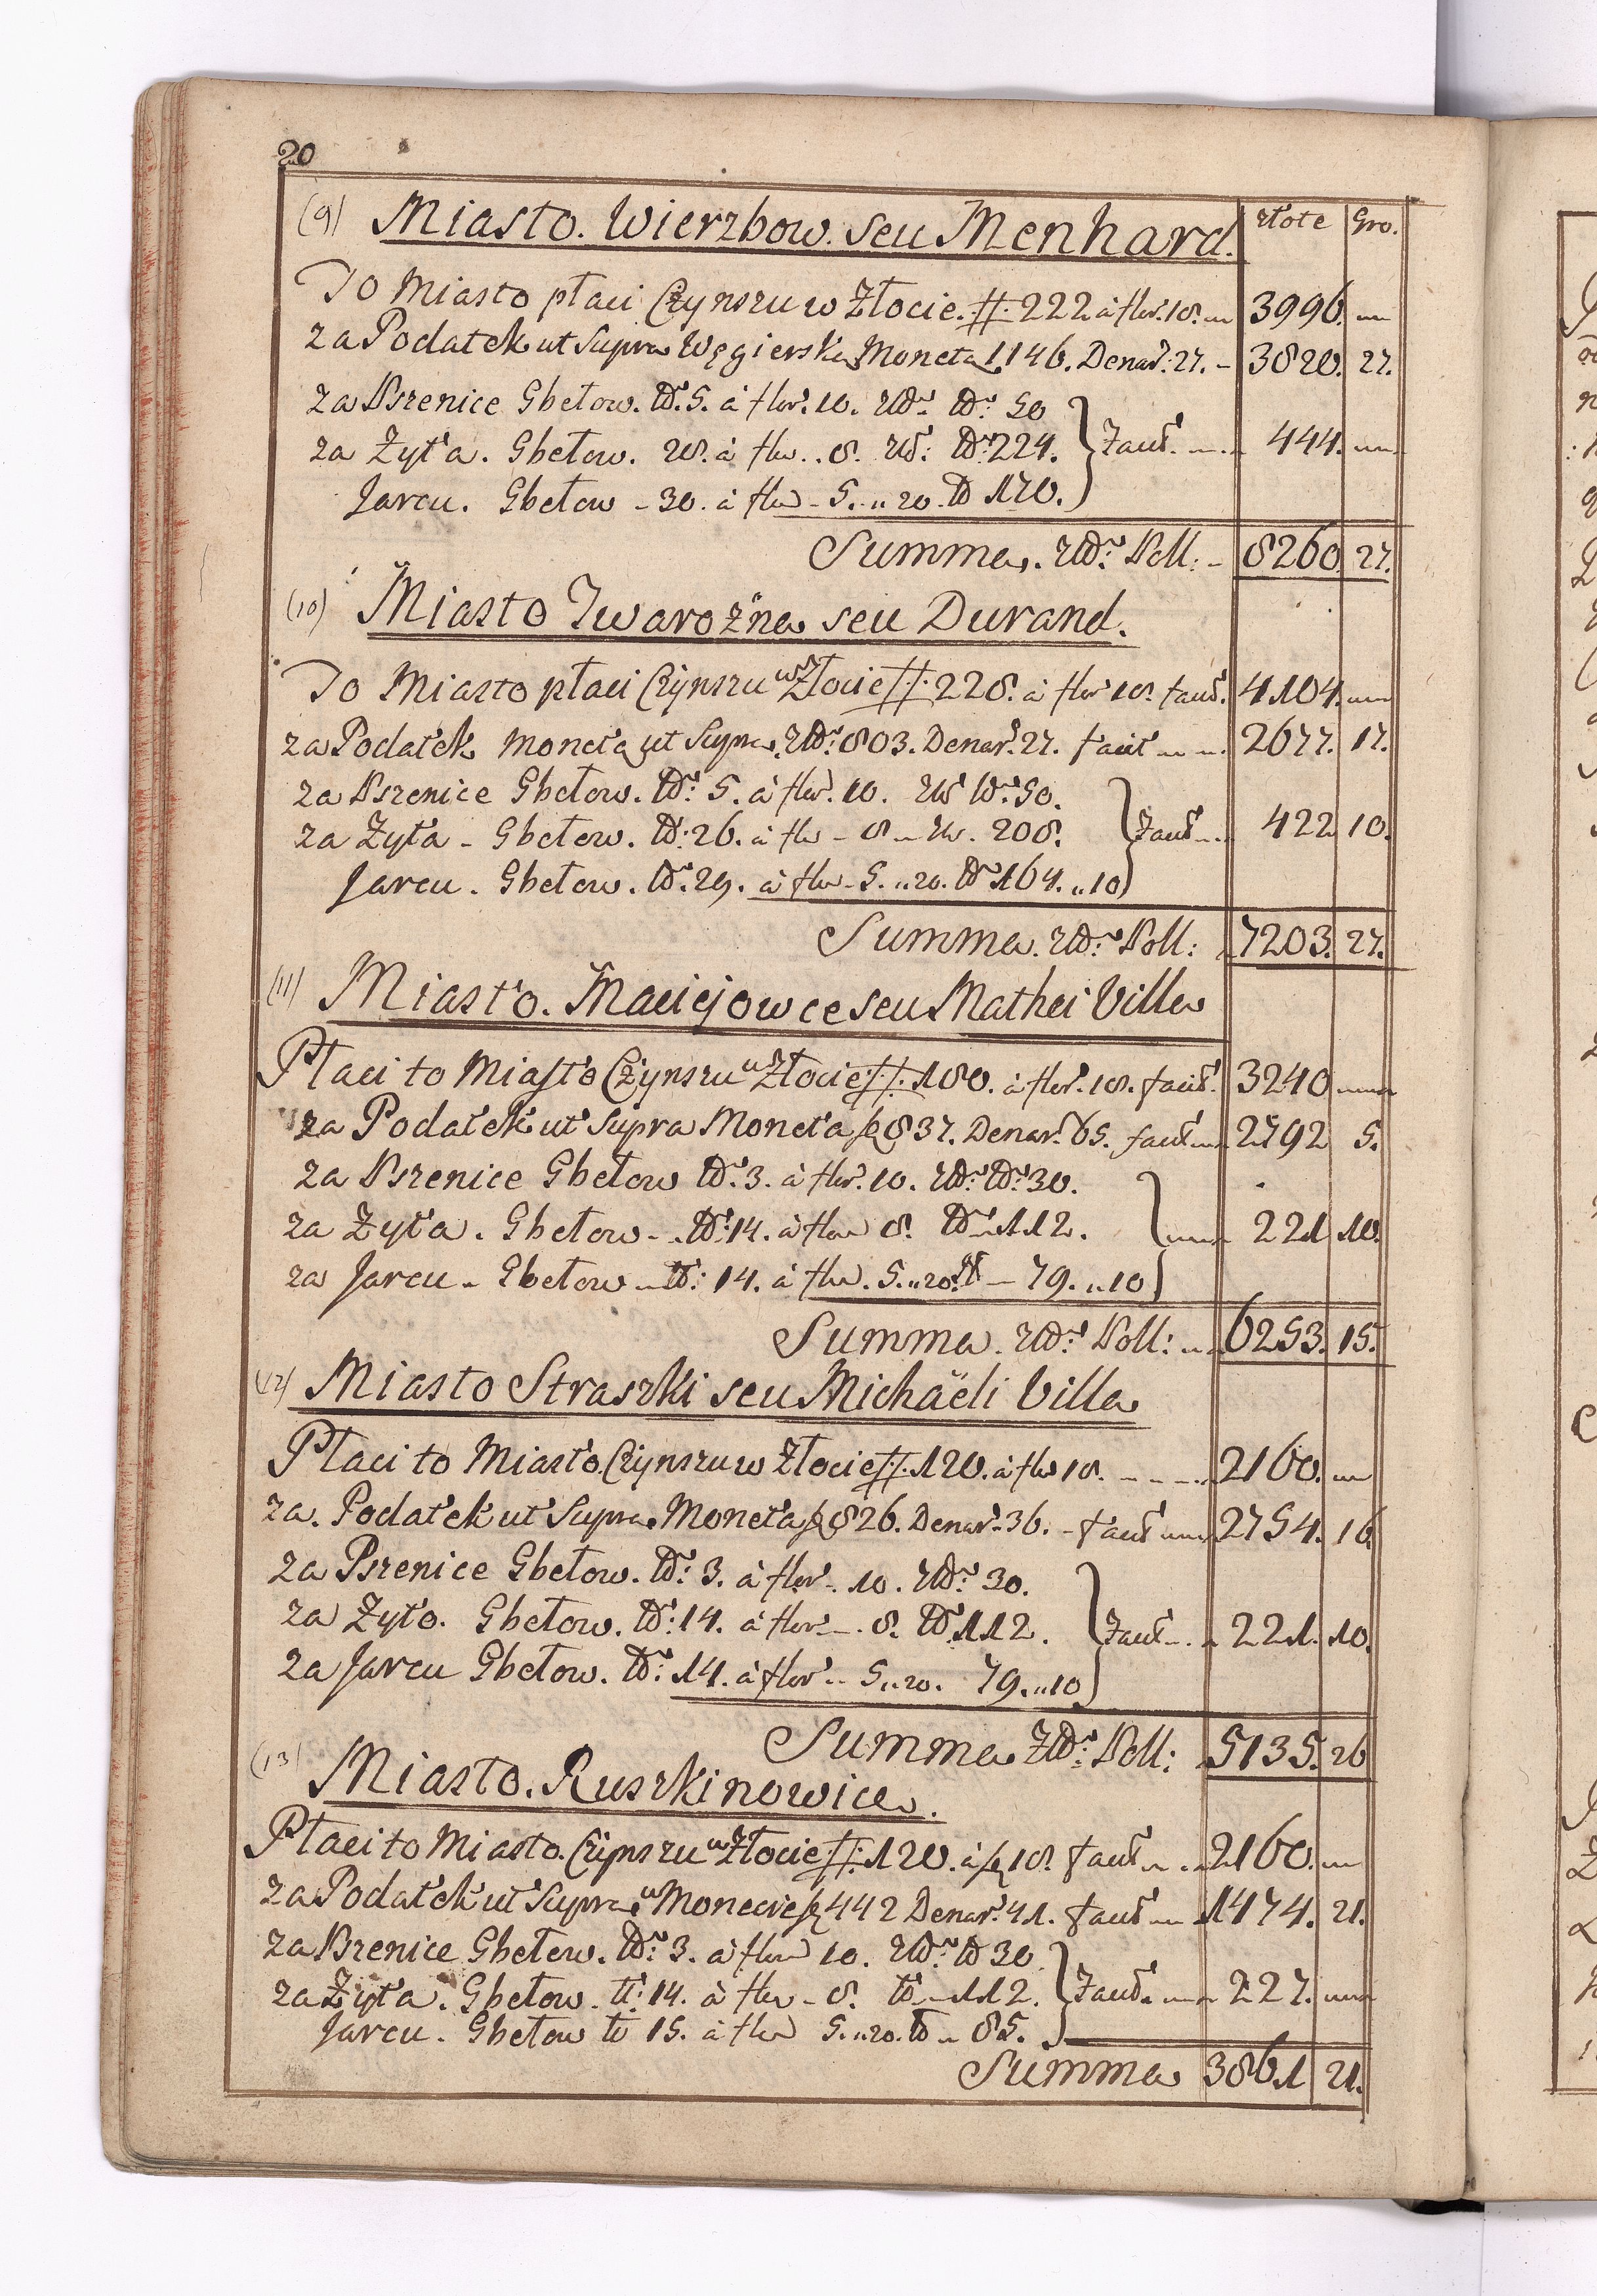 20
(9) Miasto. Wierzbow. seu Menhard. złote Gro.
To Miasto płaci Czynszu w Złocie. #. 222 à flor. 18. 3996.
za Podatek ut Supra Węgierską Monetą 1146. Denar. 27. 3820. 27.
za Pszenice Gbełow. 5. à flor. 10. 50
za Żyta. Gbełow. 28. à flor. 8. 224. Facit. 444.
Jarcu. Gbełow 30. à flor 5. 20. 170.
Summa. Poll: 8260 27.
(10) Miasto Twarożna seu Durand.
To Miasto płaci Czynszu w Złocie #. 228. à flor 18. facit. 4104.
za Podatek monetą ut Supra. 803. Denar. 27. facit 2677. 17.
za Pszenice Gbełow. 5. à flor. 10. 50.
za Żyta Gbełow. 26. à flor 8 208. Facit 422 10.
Jarcu. Gbełow. 29. à flor 5. 20. 164. 10
Summa. Poll: 7203. 27.
(11) Miasto. Maciejowce seu Mathei Villa
Płaci to Miasto Czynszu w Złocie #. 180. à flor. 18. facit. 3240
za Podatek ut Supra Moneta 837. Denar. 65. facit 2792 5.
za Pszenice Gbełow 3. à flor. 10. 30.
za Żyta. Gbełow 14. à flor 8. 112. 221 10.
za Jarcu Gbełow 14. à flor. 5. 20. 79. 10
Summa. Poll: 6253. 15.
(12) Miasto Straszki seu Michäeli Villa
Płaci to Miasto. Czynszu w Złocie #. 120. à flor 18. 2160.
za. Podatek ut Supra. Moneta 826. Denar. 36. facit 2754. 16
za Pszenice Gbełow. 3. à flor. 10. 30.
za Żyto. Gbełow. 14. à flor. 8. 112. Facit 221. 10.
za Jarcu Gbełow. 14. à flor 5. 20. 79. 10
Summa Poll: 5135. 26
(13) Miasto. Ruszkinowice.
Płaci to Miasto. Czynszu w Złocie #. 120. à 18. facit 2160.
za Podatek ut Supra w Monecie 442 Denar. 41. facit 1474. 21.
za Pszenice Gbełow. 3. à flor 10. 30
za Żyta. Gbełow 14. à flor 8. 112. Facit. 227.
Jarcu. Gbełow 15. à flor 5. 20. 85.
Summa 3861 21.